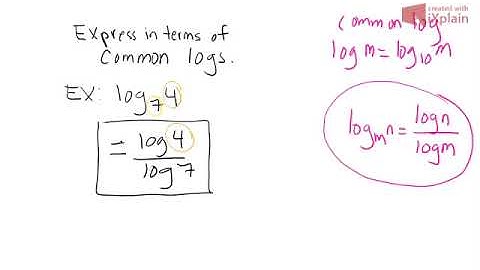 Express in terms of
Common logs.
EX: log₇4
= log 4 / log 7
common log
log m = log₁₀m
logₘn = logn / logm
created with
iXplain